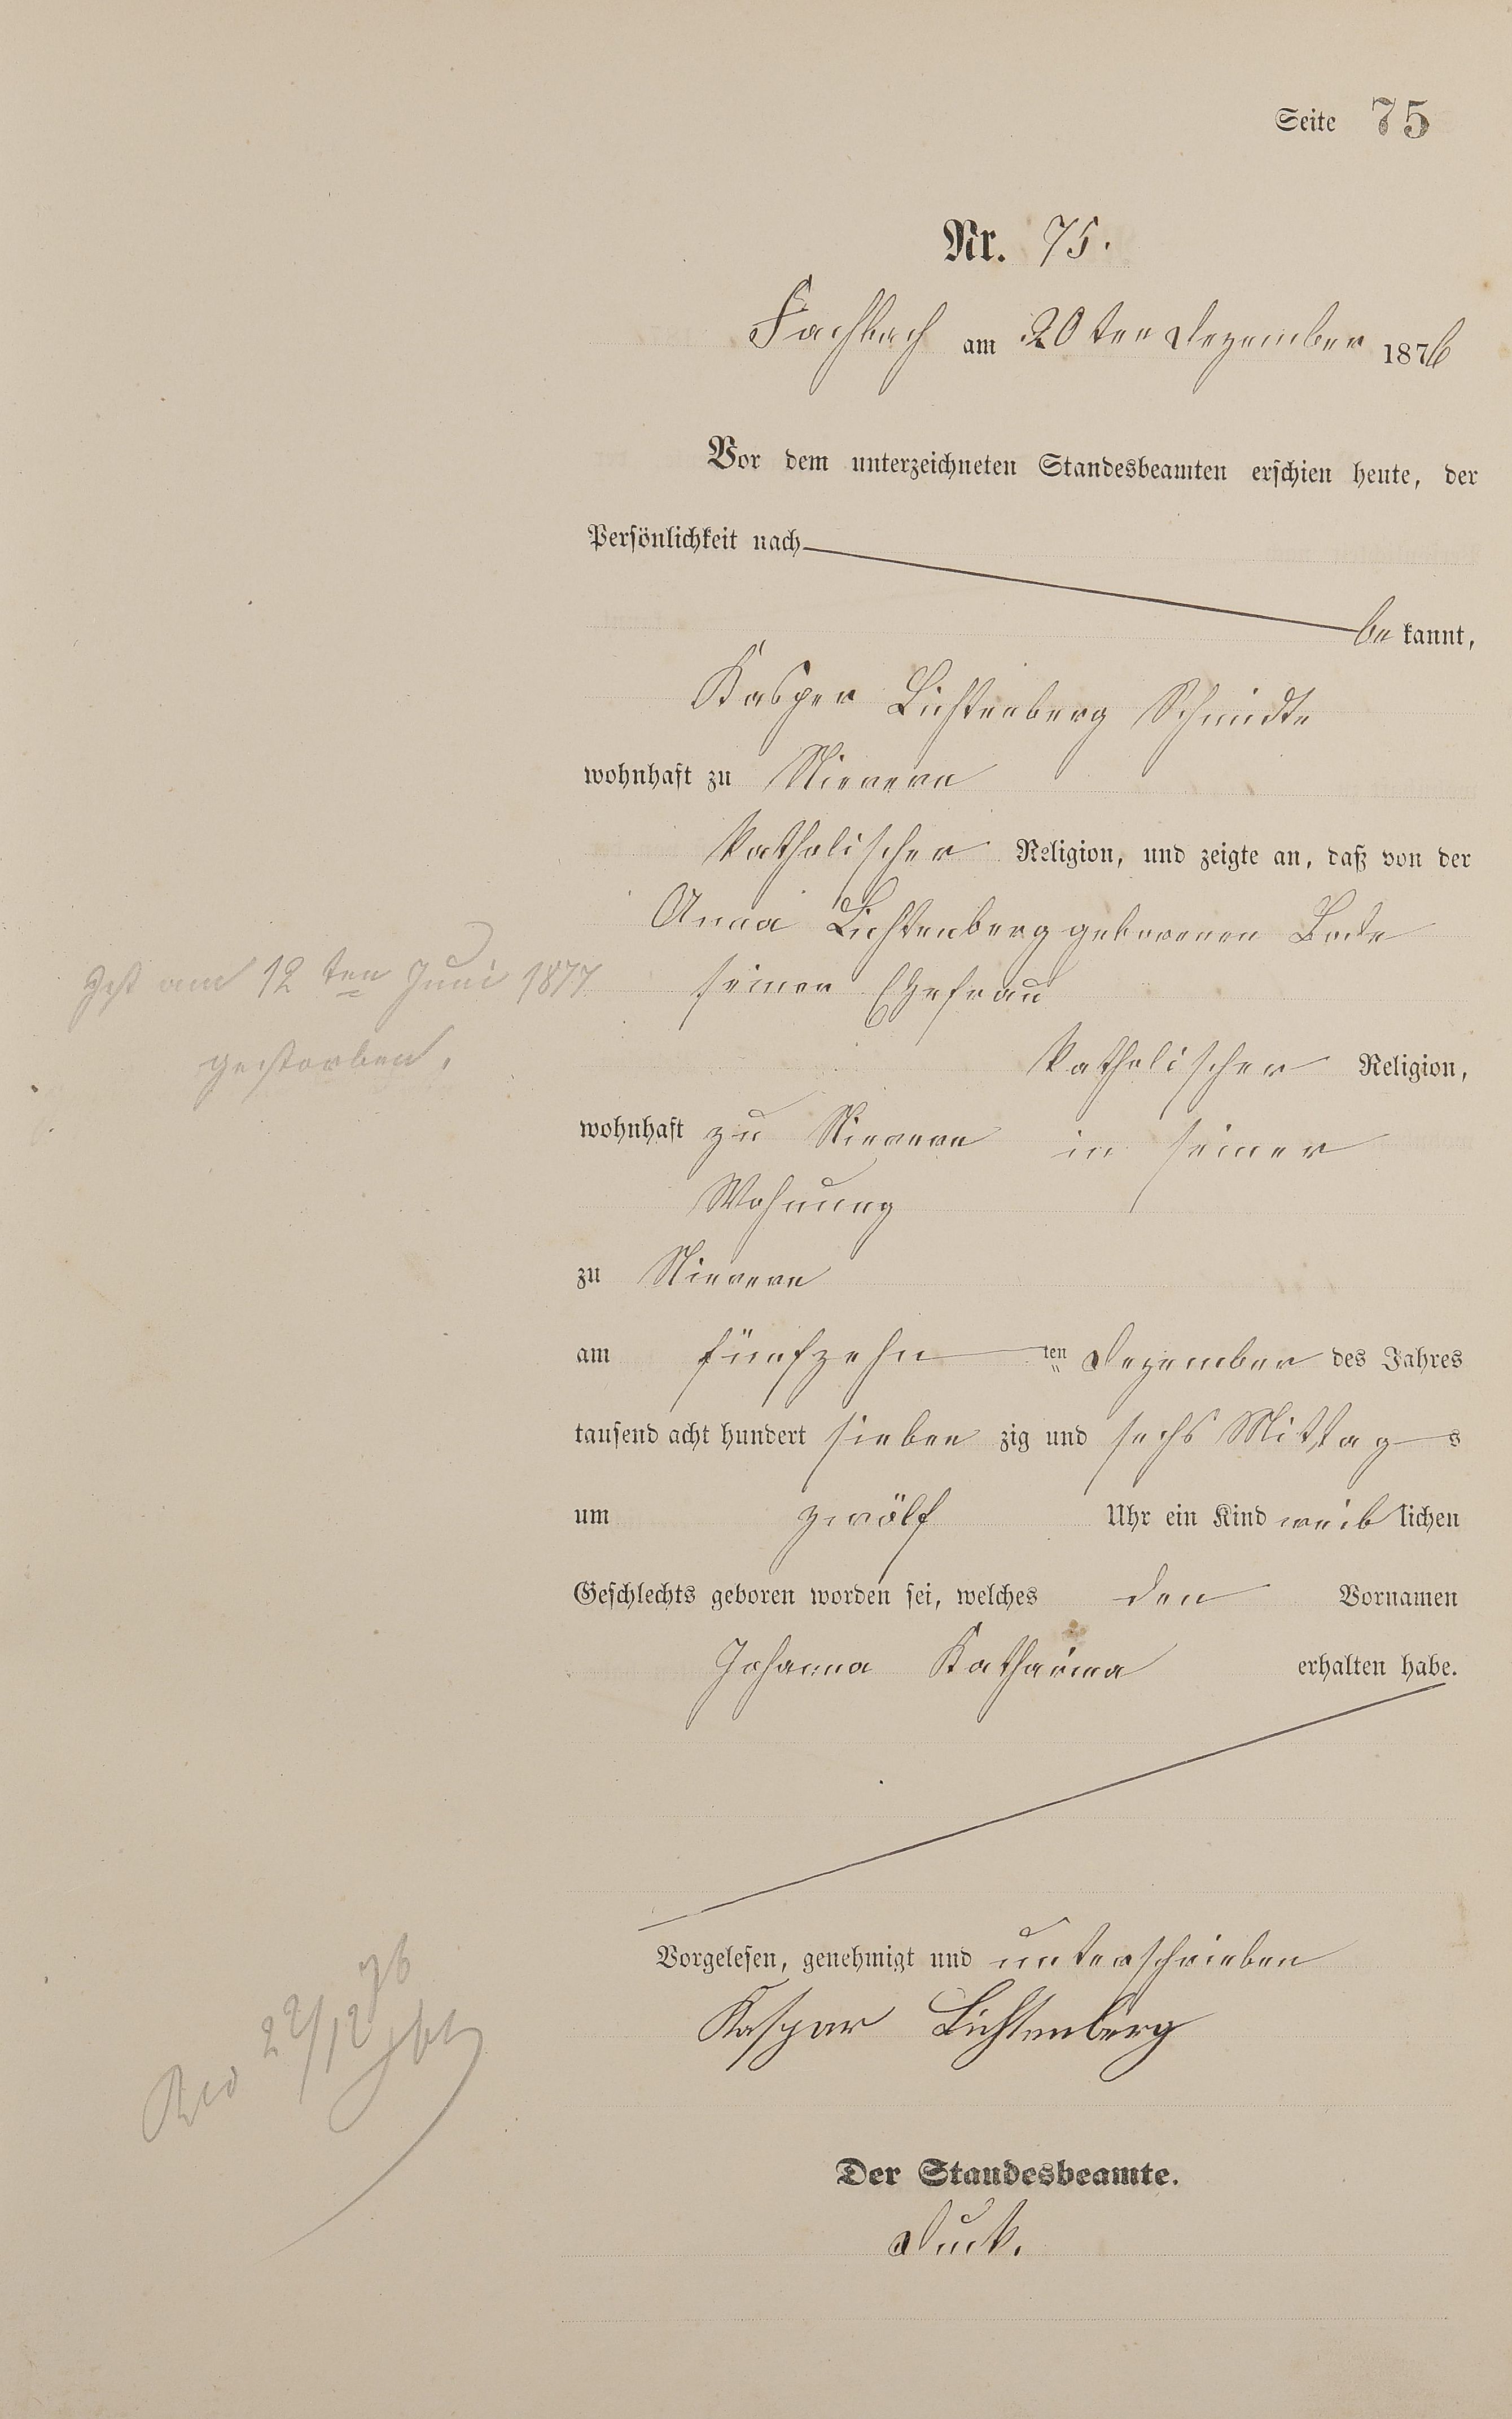 Seite 75
Nr. 75.
Fachbach am 20ten Dezember 1876
Vor dem unterzeichneten Standesbeamten erschien heute, der
Persönlichkeit nach
bekannt,
Kasper Lichtenberg Schmidte
wohnhaft zu Nievern
katholischer Religion, und zeigte an, daß von der
Anna Lichtenberg geborenen Bode
seiner Ehefrau
katholischer Religion,
Ist am 12ten Juni 1877
gestorben.
wohnhaft zu Nievern in seiner
Wohnung
zu Nievern
am fünfzehn ten Dezember des Jahres
tausend acht hundert siebenzig und sechs Mittags
um zwölf Uhr ein Kind weiblichen
Geschlechts geboren worden sei, welches den Vornamen
Johanna Katharina erhalten habe.
Vorgelesen, genehmigt und unterschrieben
Kaspar Lichtenberg
22/12 76
Der Standesbeamte.
Duck.